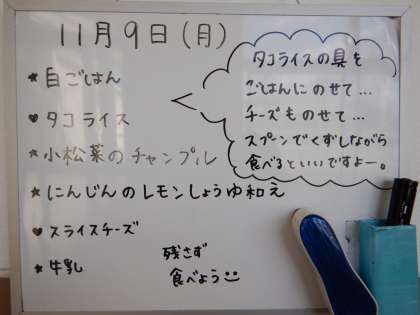 11月9日(月)
★白ごはん
♥タコライス
★小松菜のチャンプル
★にんじんのレモンしょうゆ和え
♥スライスチーズ
★牛乳
タコライスの具を
ごはんにのせて...
チーズものせて...
スプーンでくずしながら
食べるといいですよー。
残さず
食べよう